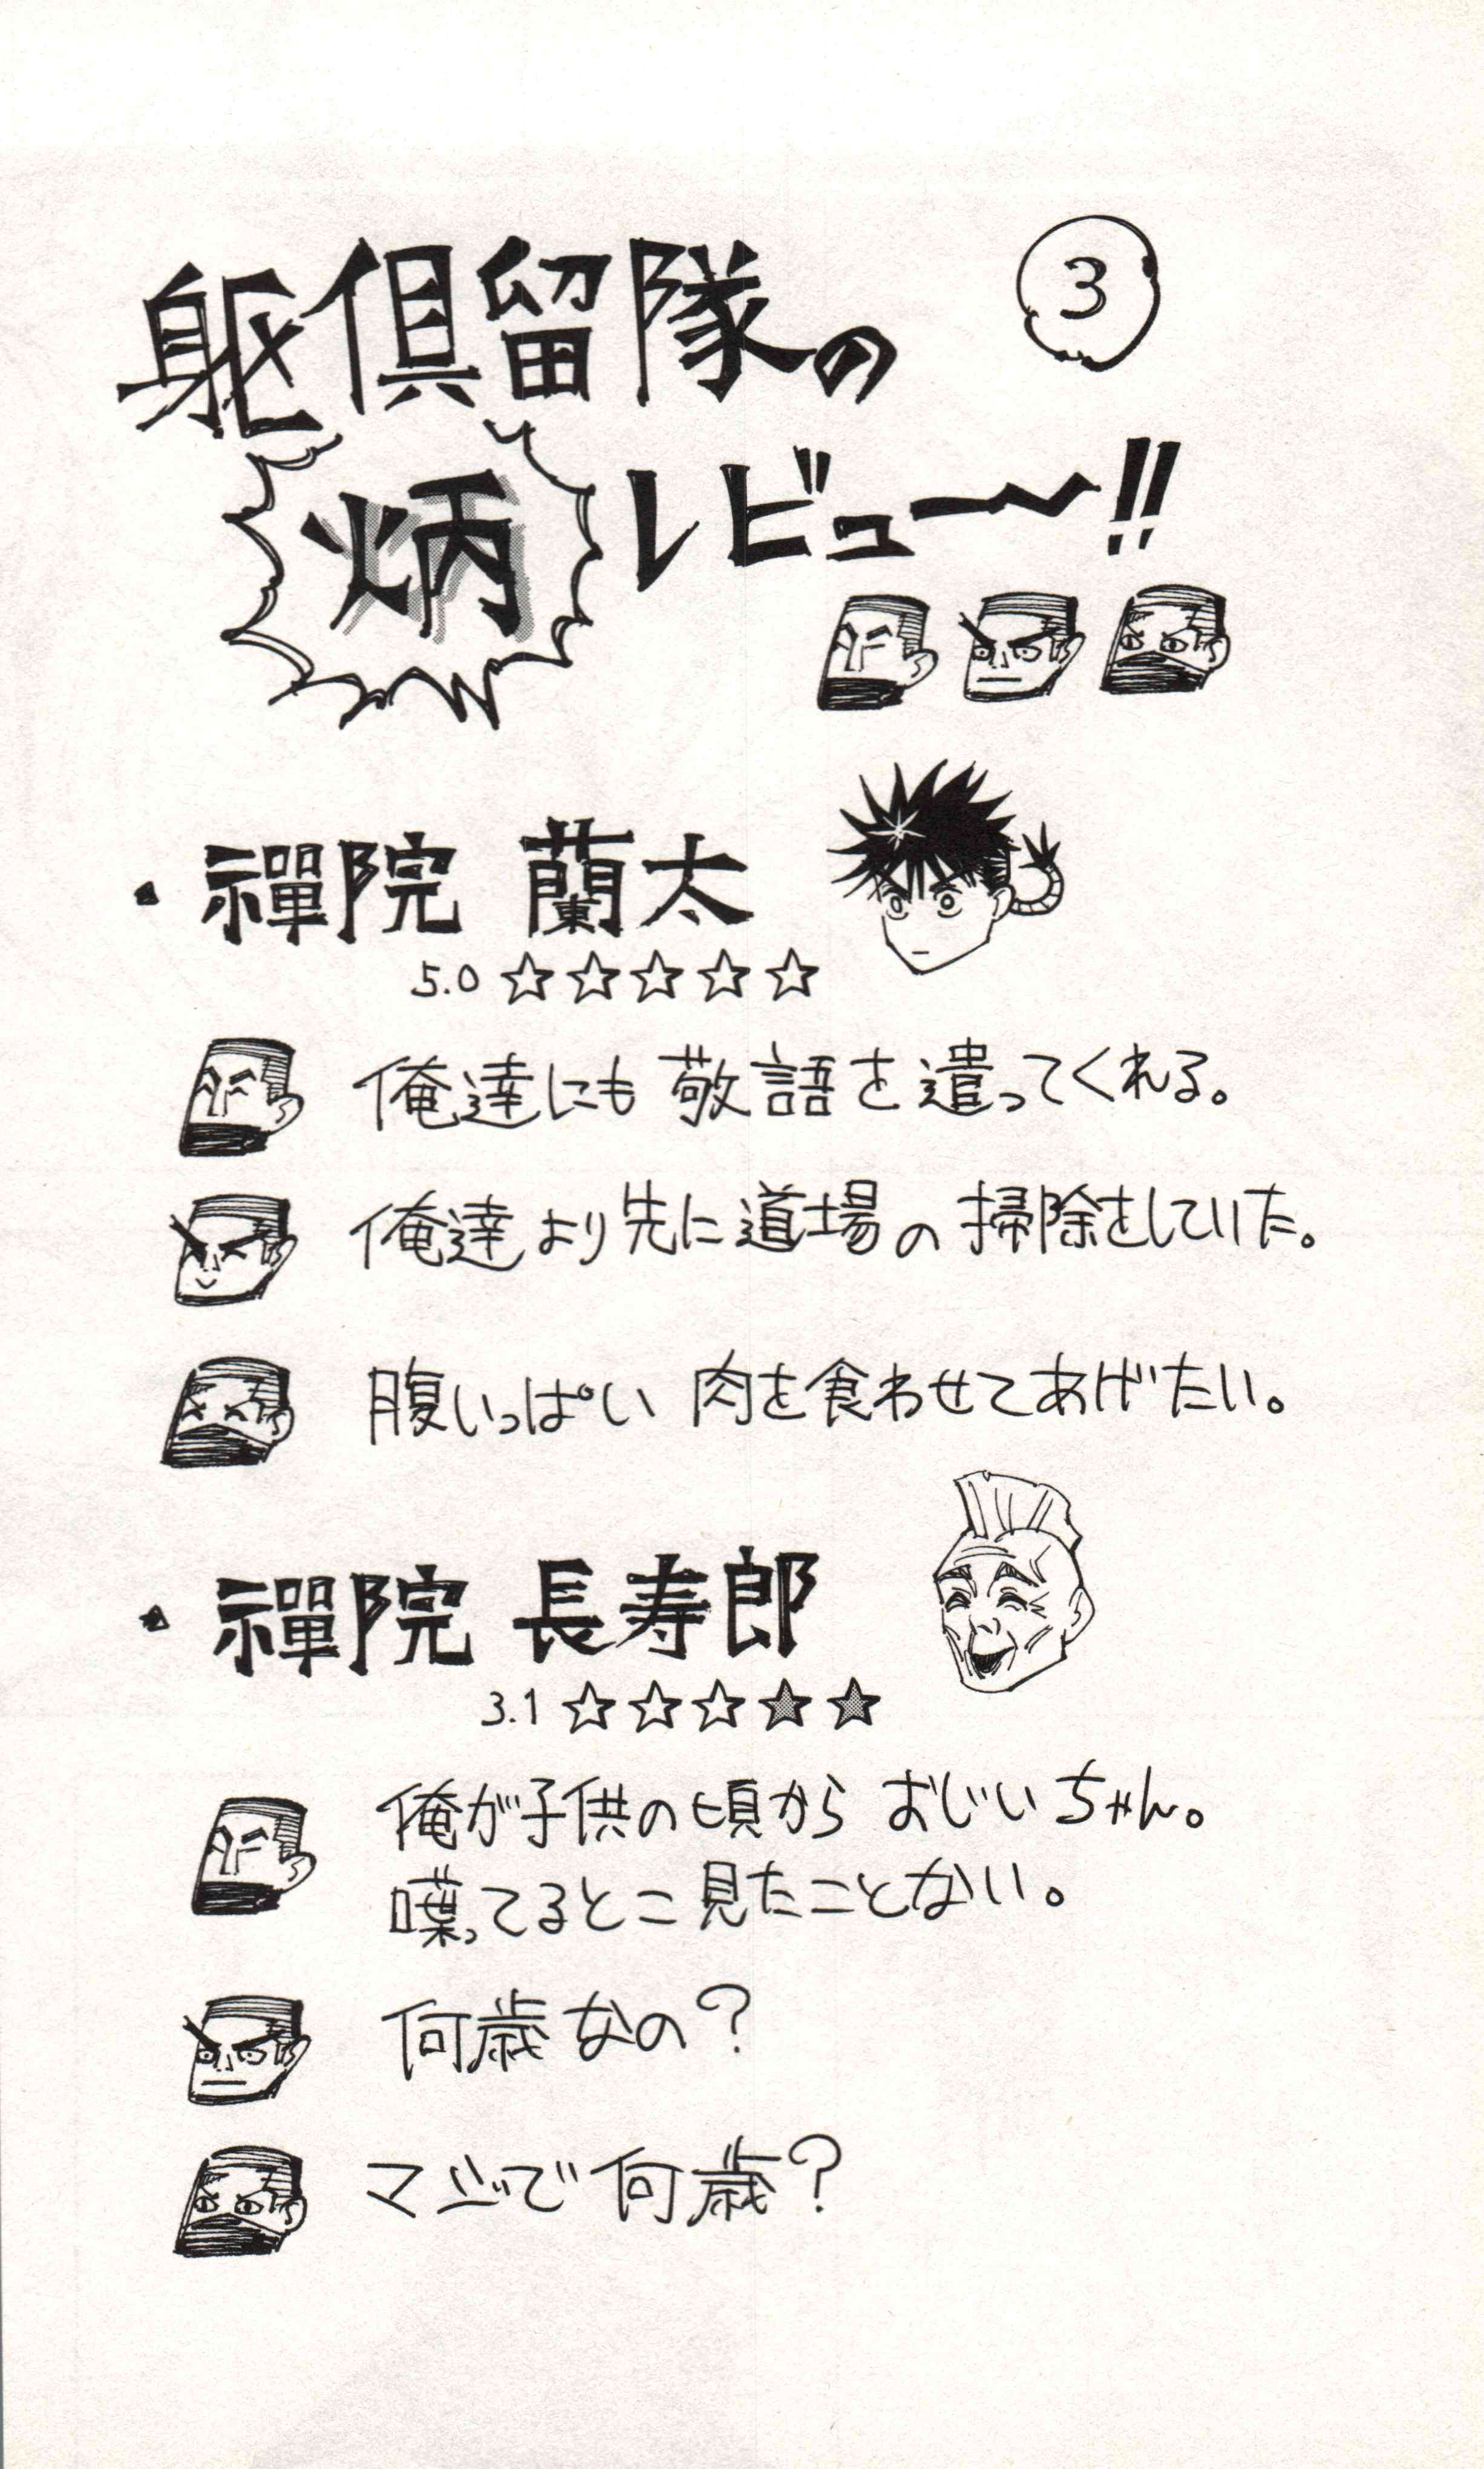 躯倶留隊の
③
炳レビュ〜!!
・禪院 蘭太
5.0 ☆☆☆☆☆
俺達にも敬語を遣ってくれる。
俺達より先に道場の掃除をしていた。
腹いっぱい肉を食わせてあげたい。
・禪院 長寿郎
3.1 ☆☆☆★★
俺が子供の頃からおじいちゃん。
喋ってるとこ見たことない。
何歳なの?
マジで何歳?